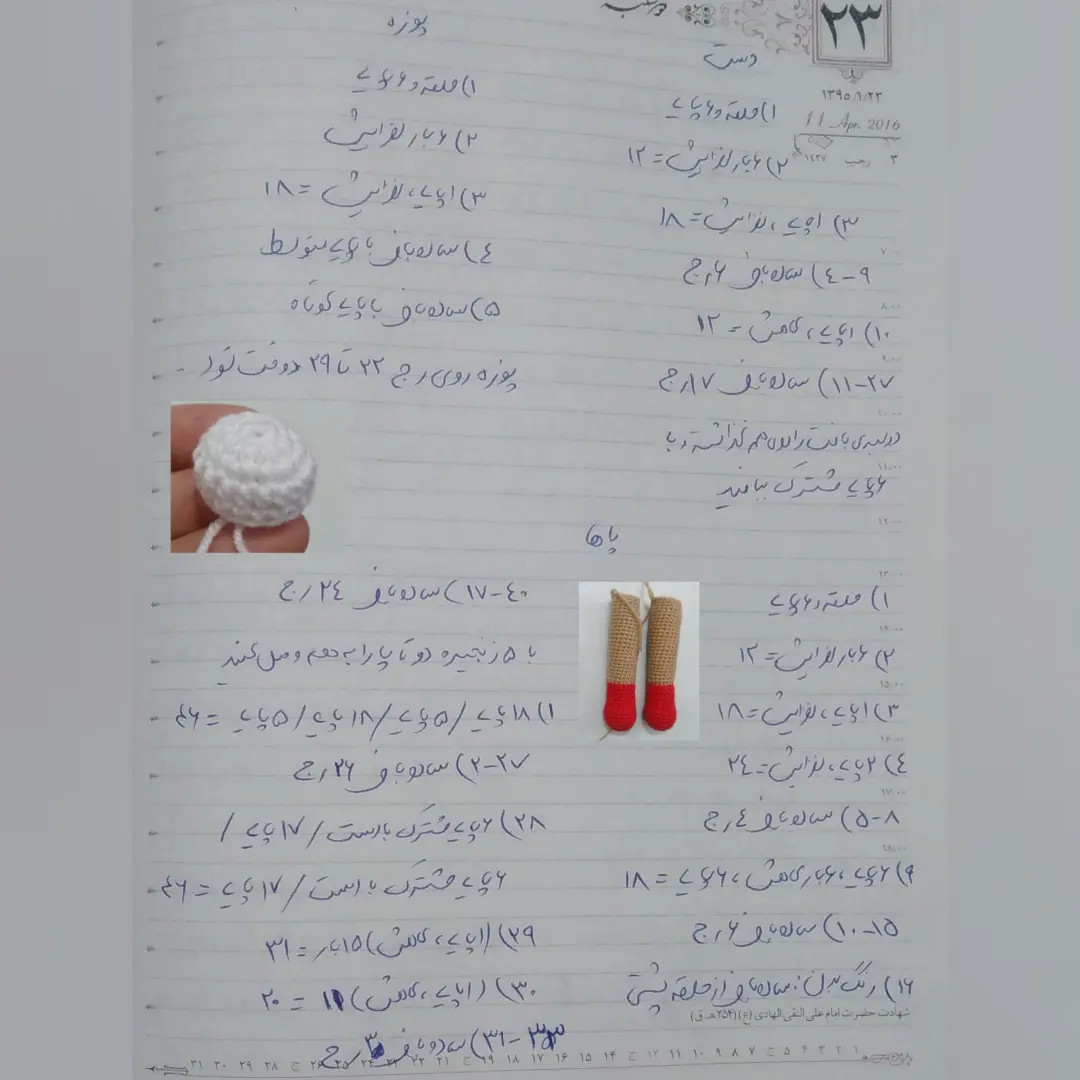 ۲۳
۱۳۹۵/۱/۲۳
11 Apr. 2016
۳ رجب ۱۴۳۷
دست
۱) حلقه و ۶ پایه
۲) ۶ بار افزایش = ۱۲
۳) ۱ پایه، افزایش = ۱۸
۴-۹) ساده بافی ۶ رج
۱۰) ۱ پایه، کاهش = ۱۲
۱۱-۲۷) ساده بافی ۱۷ رج
دو لبه ی بافت را روی هم گذاشته و با
۶ پایه مشترک ببافید
پوزه
۱) حلقه و ۶ پایه
۲) ۶ بار افزایش
۳) ۱ پایه، افزایش = ۱۸
۴) ساده بافی با پایه متوسط
۵) ساده بافی با پایه کوتاه
پوزه روی رج ۲۲ تا ۲۹ دوخت شود.
پاها
۱) حلقه و ۶ پایه
۲) ۶ بار افزایش = ۱۲
۳) ۱ پایه، افزایش = ۱۸
۴) ۲ پایه، افزایش = ۲۴
۵-۸) ساده بافی ۴ رج
۹) ۶ پایه، ۶ بار کاهش، ۶ پایه = ۱۸
۱۰-۱۵) ساده بافی ۶ رج
۱۶) رنگ بدن: ساده بافی از حلقه پشتی
۱۷-۴۰) ساده بافی ۲۴ رج
با ۵ زنجیره دو تا پا را به هم وصل کنید
۱) ۱۸ پایه / ۵ پایه / ۱۸ پایه / ۵ پایه = ۴۶
۲-۲۷) ساده بافی ۲۶ رج
۲۸) ۶ پایه مشترک با دست / ۱۷ پایه /
۶ پایه مشترک با دست / ۱۷ پایه = ۴۶
۲۹) (۱ پایه، کاهش) ۱۵ بار = ۳۱
۳۰) (۱ پایه، کاهش) ۱۱ = ۲۰
۳۱-۳۳) ساده بافی ۳ رج
شهادت حضرت امام علی النقی الهادی (ع) (۲۵۴ ه‍.ق)